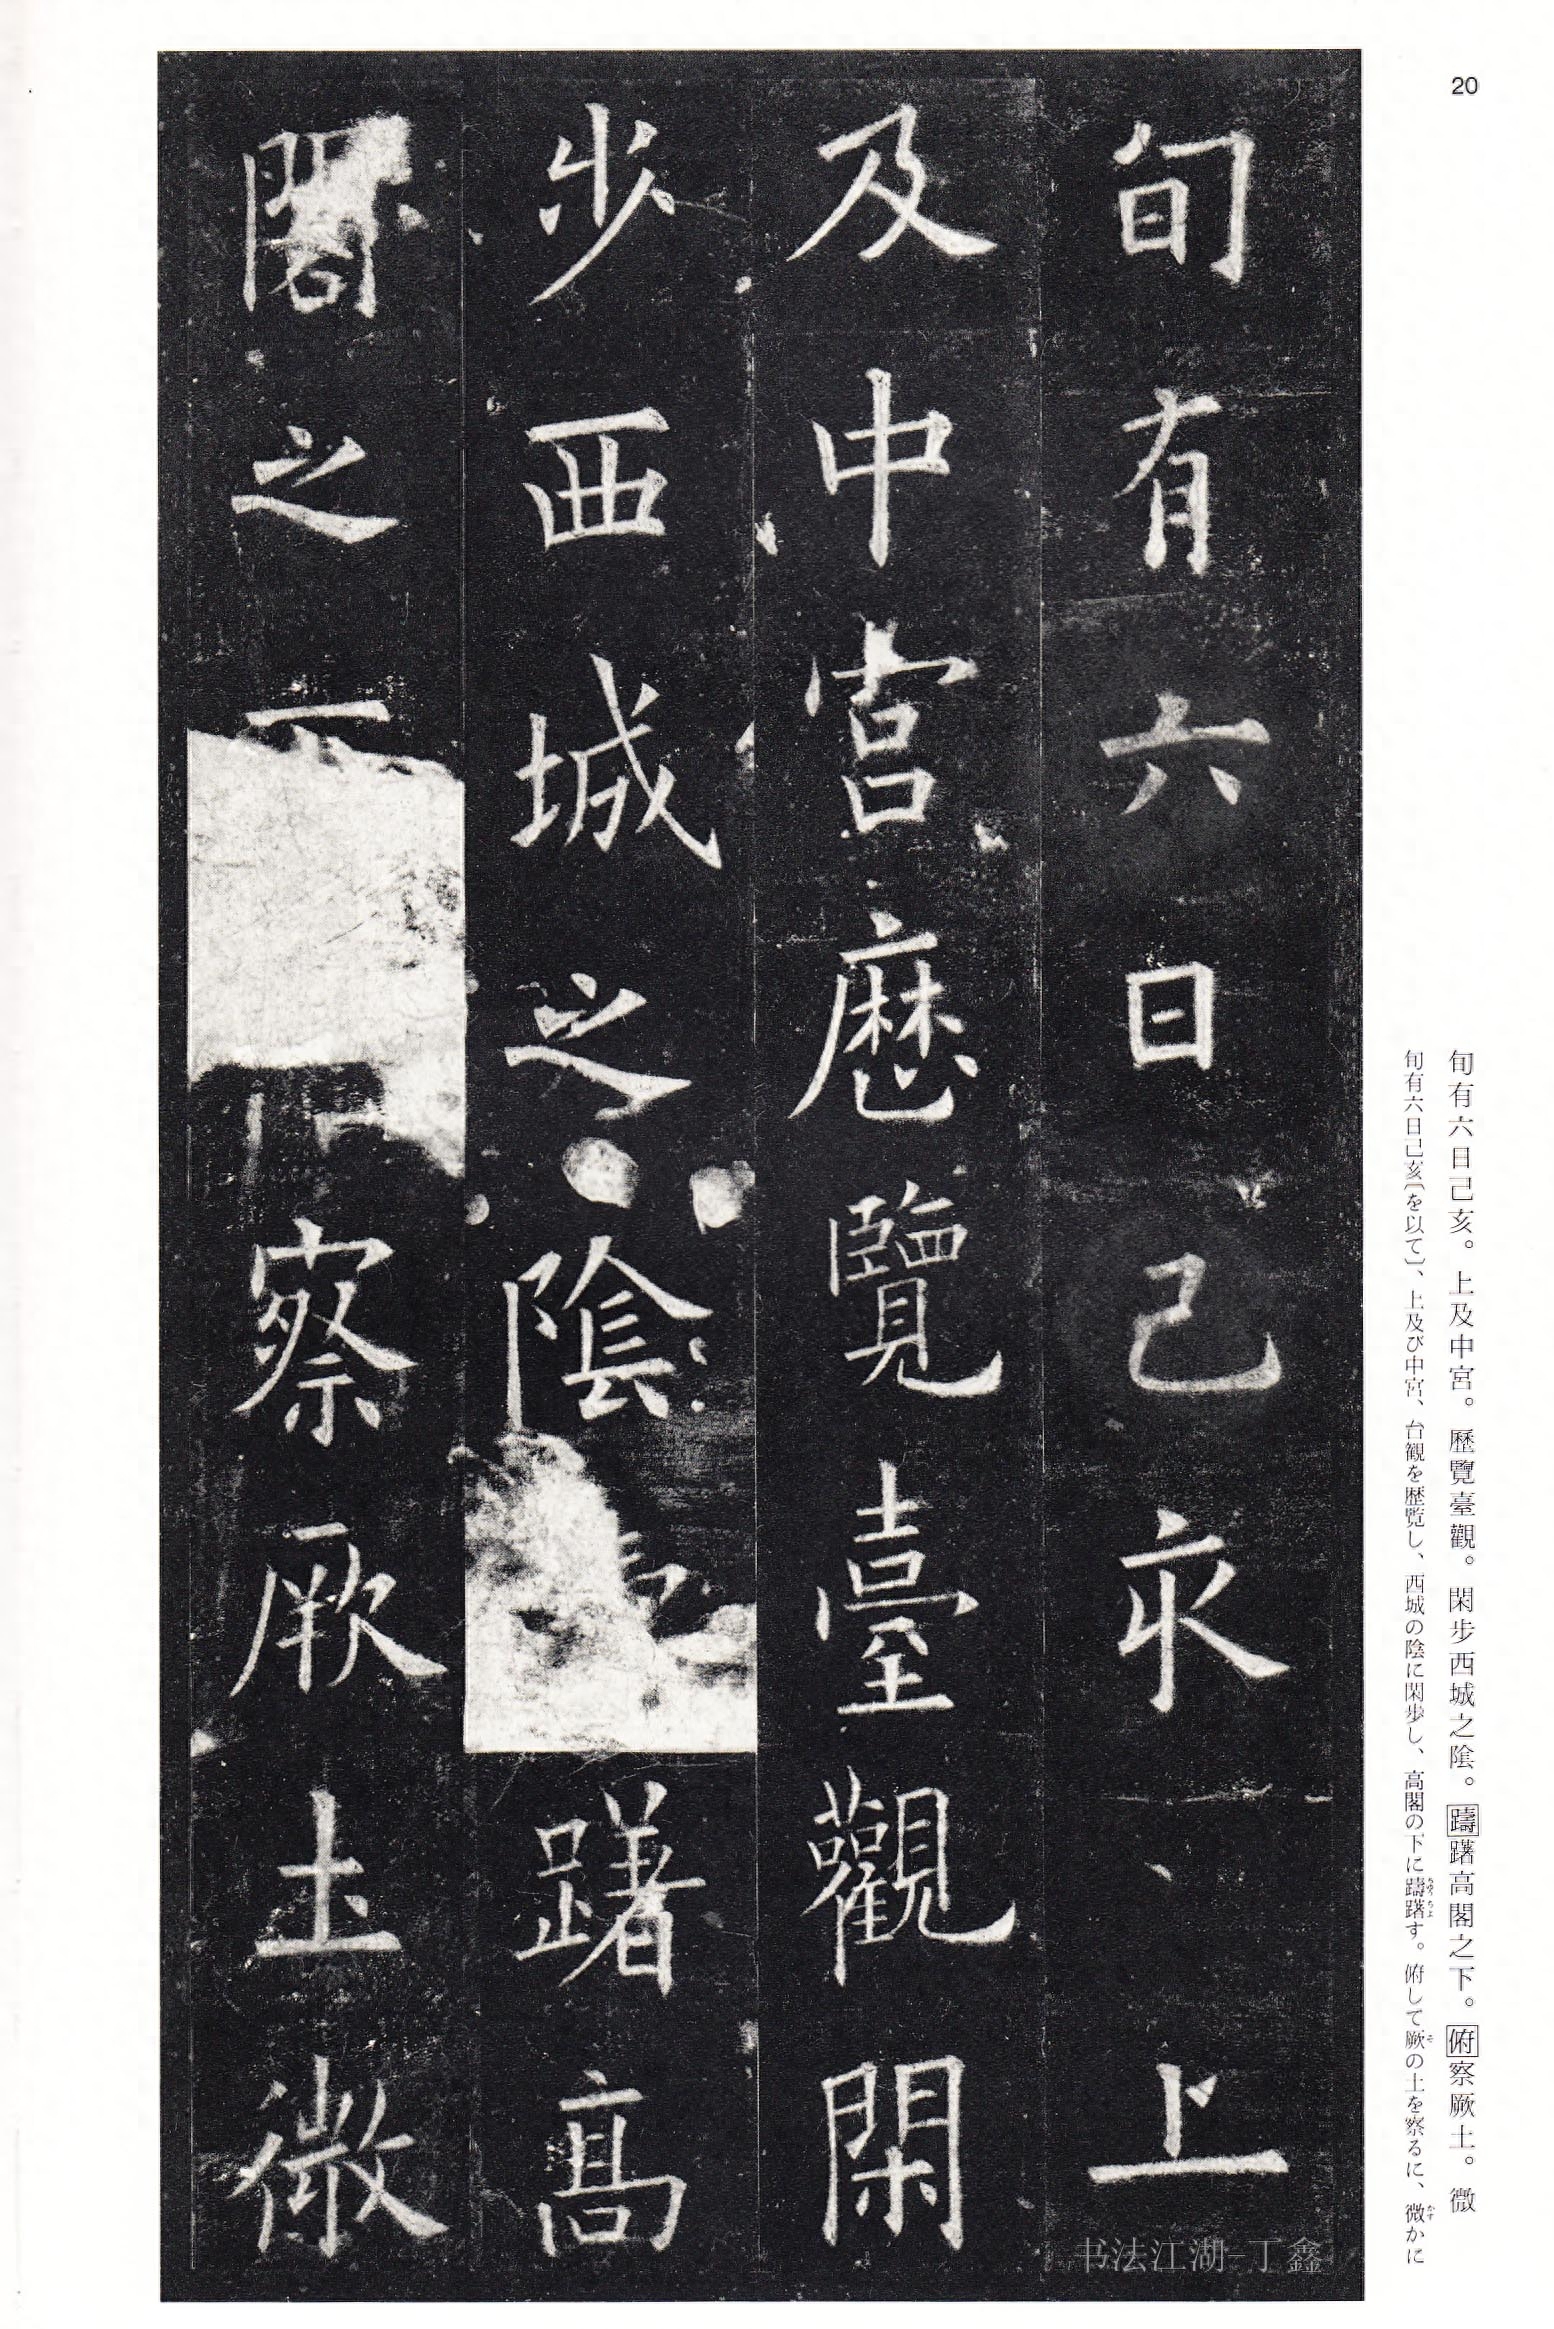 20
旬有六日己亥。上及中宮。歷覽臺觀。閑步西城之陰。躊躇高閣之下。俯察厥土。微
旬有六日己亥〔を以て〕、上及び中宮、台観を歴覧し、西城の陰に閑歩し、高閣の下に躊躇す。俯して厥の土を察るに、微かに
旬有六日己亥上
及中宮歷覽臺觀閑
步西城之陰躇高
閣之下察厥土微
书法江湖-丁鑫